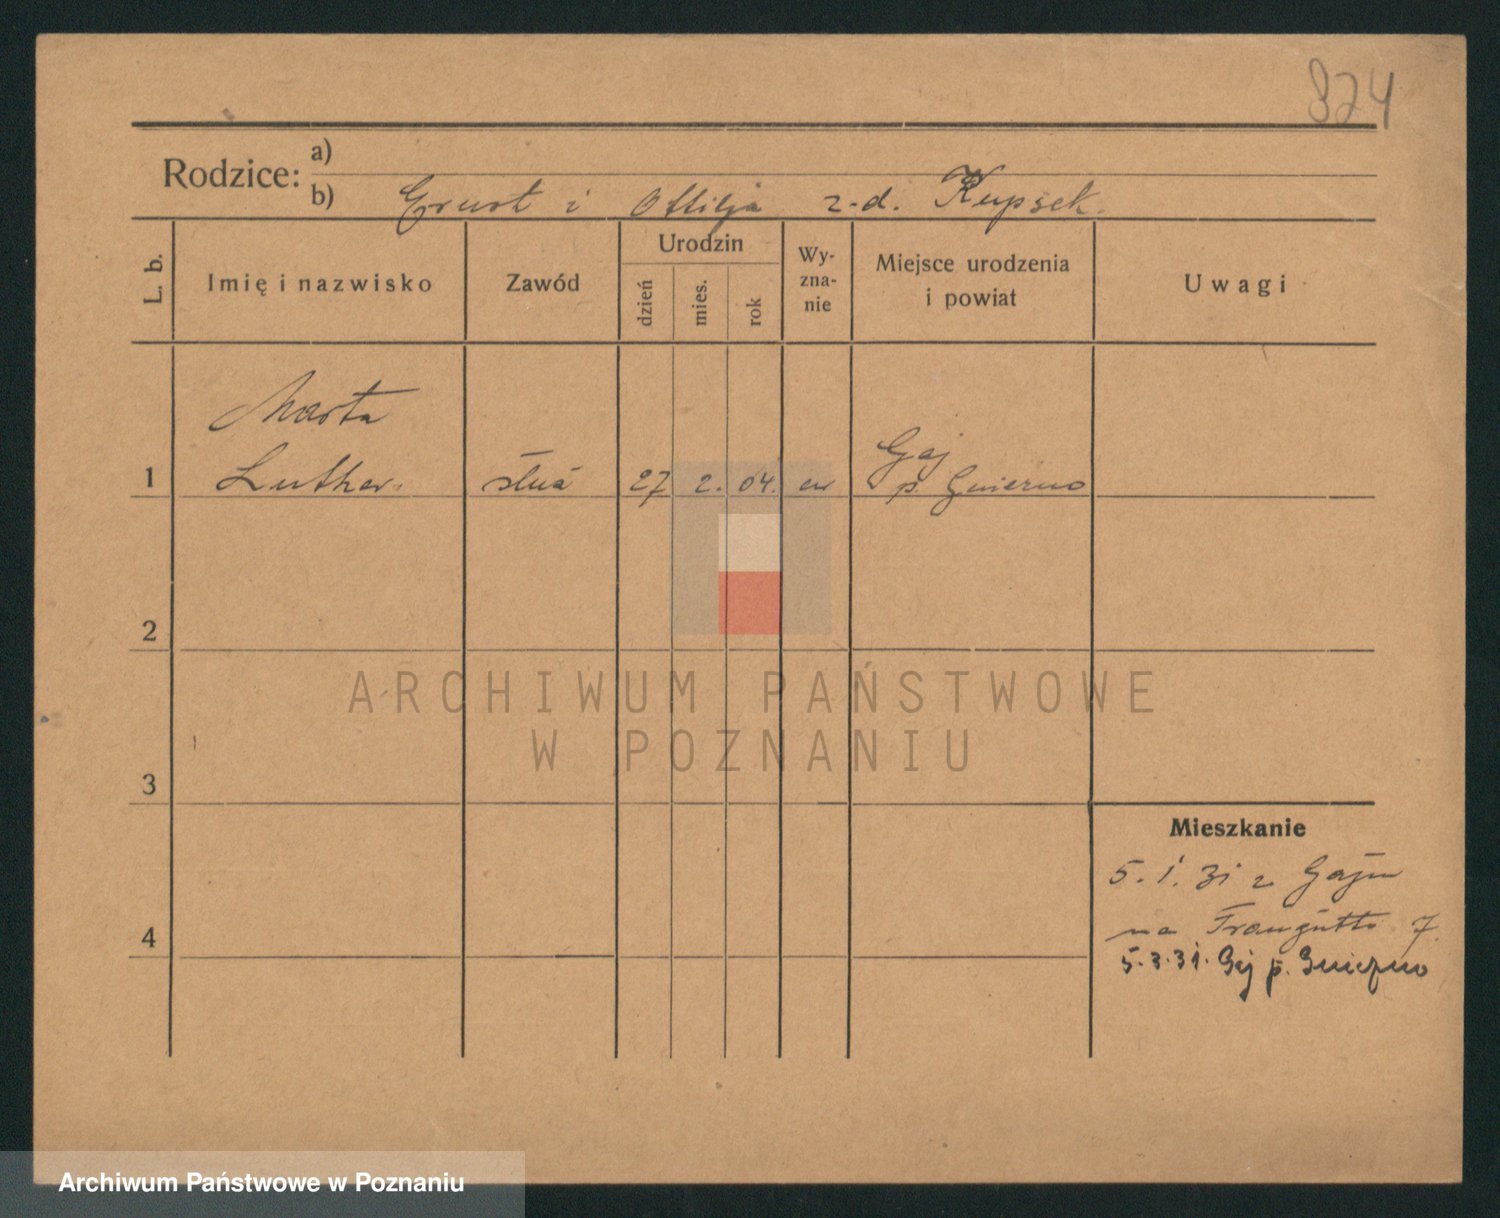 824
Rodzice: a)
b) Ernst i Ottilja z-d. Kupsek.
L. b.
Imię i nazwisko
Zawód
Urodzin
dzień
mies.
rok
Wy-
zna-
nie
Miejsce urodzenia
i powiat
Uwagi
Marta
1 Luther. służ 27 2. 04. ew Gaj
p. Gniezno
2
3
4
Mieszkanie
5. 1. 31 z Gaju
na Traugutta 7.
5.3.31. Gaj p. Gniezno
ARCHIWUM PAŃSTWOWE
W POZNANIU
Archiwum Państwowe w Poznaniu